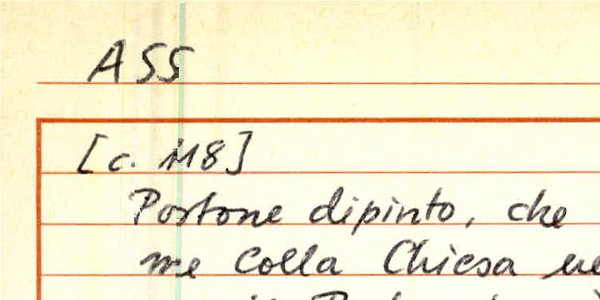 ASS
[c. 118]
Portone dipinto, che
me colla Chiesa